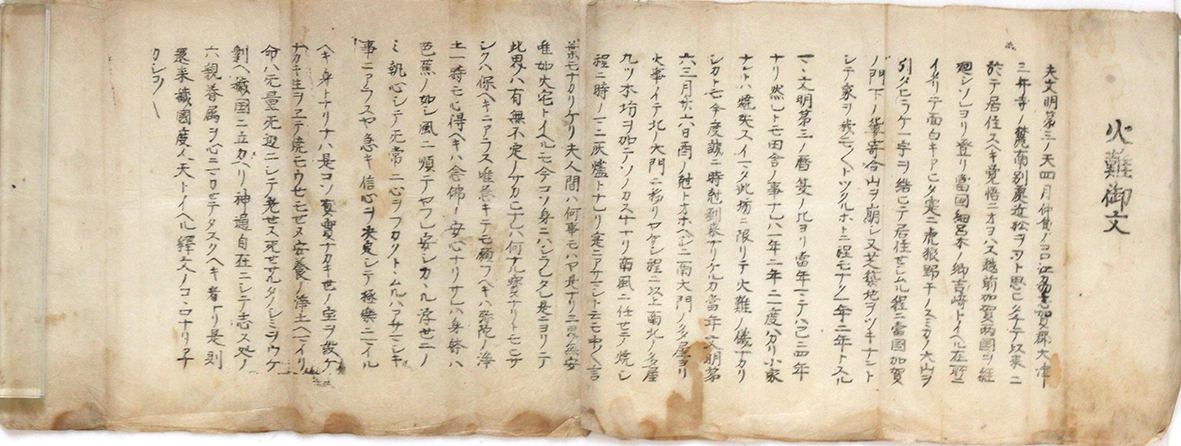 火難御文
夫文明第三ノ天四月仲旬ノコロ江州志賀郡大津
三井寺ノ麓南別所近松ヲフト思ヒタチテ以来ニ
於テ居住スヘキ覚悟ニオヨハス越前加賀両国ヲ経
廻シソレヨリ登リ當国細呂木ノ郷吉崎トイヘル在所ニ
イタリテ面白キアヒタ寔ニ虎狼野干ノスミカノ大山ヲ
引タヒラケテ一宇ヲ結ヒテ居住セシムル程ニ當国加賀
ノ門下ノ輩寄合山ヲ崩シ又芝築地ヲツキナント
シテ家ヲ我モ〱トツクルホトニ程モナク一年二年トスル
マヽ文明第三ノ暦夏ノ比ヨリ當年マテハ已ニ四年
ナリ然レトモ田舎ノ事ナレハ一年ニ一度ハ小家
ナントハ焼失スイマタ此坊ニ限リテ火難ノ儀ナカリ
シカトモ今度誠ニ時剋到来ナリケルカ當年文明第
六三月廿八日酉ノ剋トオホヘシニ南大門ノ多屋ヨリ
火事イテ北大門ニ移リヤケシ程ニ以上南北ノ多屋
九ツ本坊ヲ加テソノカス十ナリ南風ニ任セテ焼シ
程ニ時ノマニ灰燼トナレリ寔ニアサマシト云モ中〱言
葉モナカリケリ夫人間ハ何事モハヤ是ナリ三界無安
唯如火宅トイヘルモ今コソ身ニハシラレタレ是ニヨリテ
此界ハ有無不定ノサカヒナレハ何ナル家ナリトモヒサ
シクハ保ヘキニアラス唯急キテモ願フヘキハ弥陀ノ浄
土一時モ心得ヘキハ念佛ノ安心ナリサレハ身躰ハ
芭蕉ノ如シ風ニ順テヤフレ安シカヽル浮世ニノ
ミ執心シテ无常ニ心ヲフカクトヽムルハアサマシキ
事ニアラスヤ急キ信心ヲ决定シテ極樂ニマイル
ヘキ身トナリナハ是コソ真實ナカキ世ノ宝ヲ儲ケ
ナカキ生ヲヱテ焼モウセモセヌ安養ノ浄土ヘマイリ
命ハ无量无辺ニシテ老セス死セサルタノシミヲウケ
剰ヘ穢国ニ立カヘリ神通自在ニシテ志ス処ノ
六親眷属ヲ心ニマカセテタスクヘキ者ナリ是則
還来穢國度人天トイヘル釋文ノコヽロナリアナ
カシコ〱